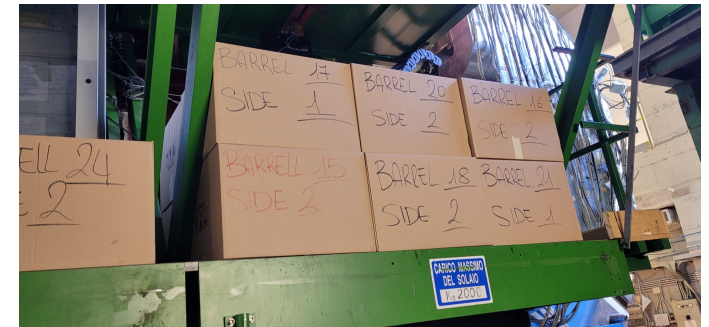 BARREL 17
SIDE 1
BARREL 20
SIDE 2
BARREL 16
SIDE 2
ELL 24
2
BARRELL 15
SIDE 2
BARREL 18
SIDE 2
BARREL 21
SIDE 1
CARICO MASSIMO
DEL SOLAIO
Kg 2000